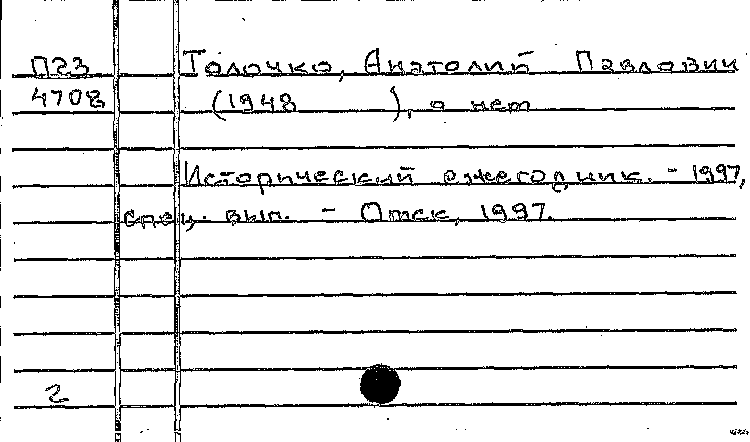 П23 Толочко, Анатолий Павлович
4708 (1948 ), о нем
Исторический ежегодник. - 1997,
спец. вып. - Омск, 1997.
2